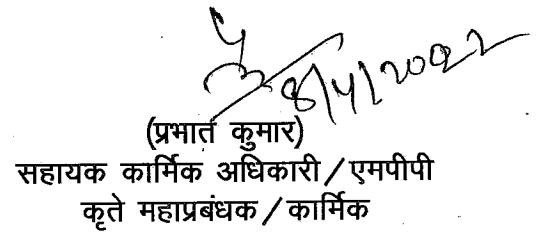 8/4/2022
(प्रभात कुमार)
सहायक कार्मिक अधिकारी/एमपीपी
कृते महाप्रबंधक/कार्मिक